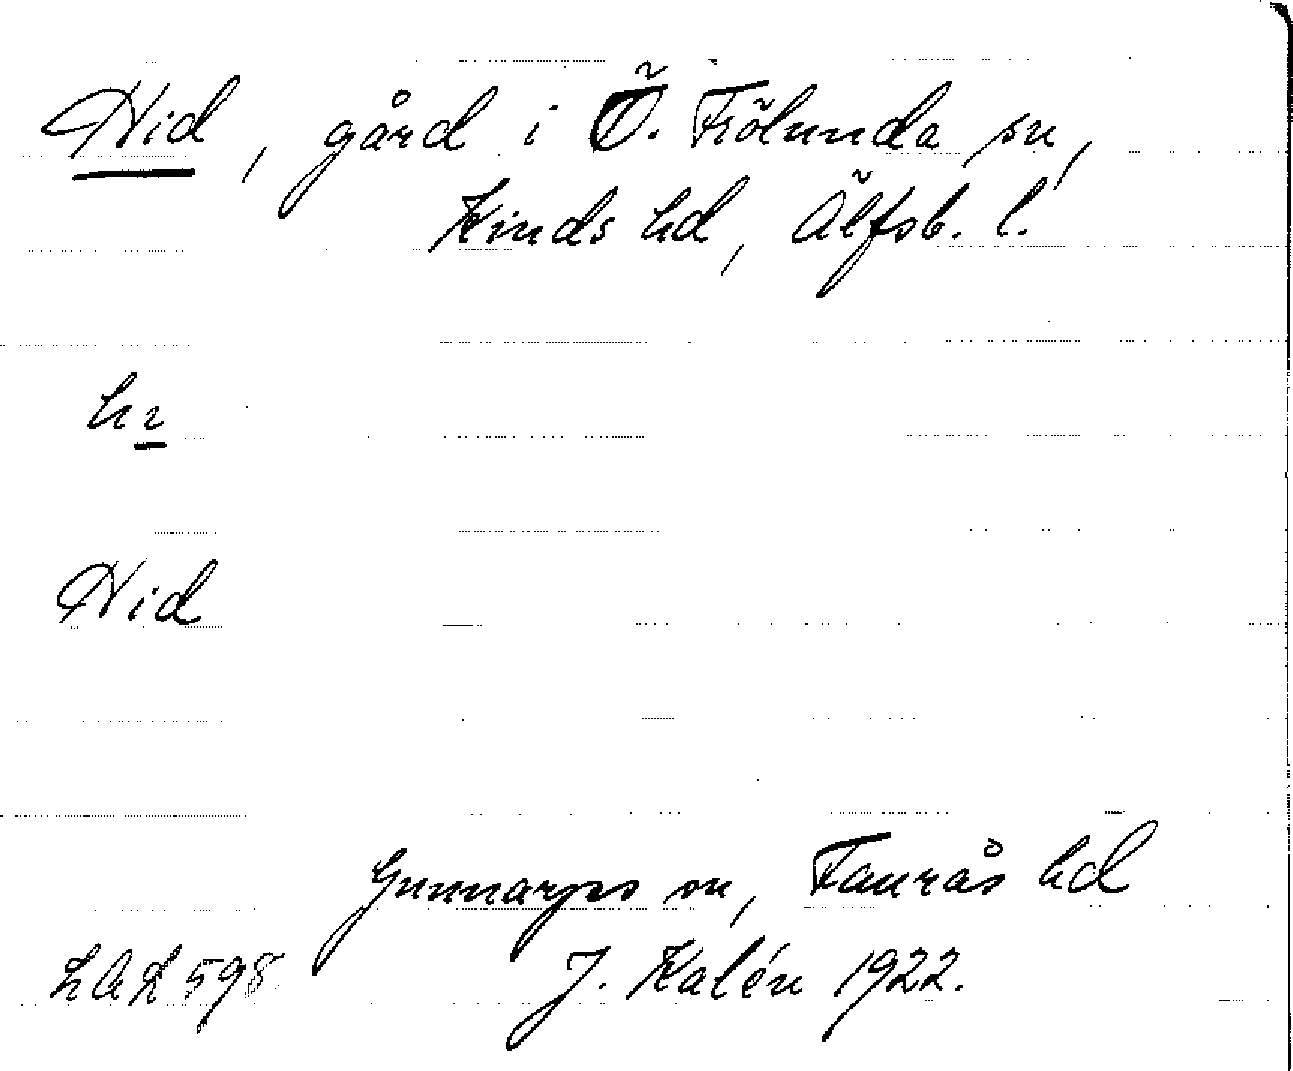 Hid, gård i Ö. Frölunda sn,
Kinds hd, Älfsb. l.
Hid
Gunnarps sn, Faurås hd
598 J. Kalén 1922.